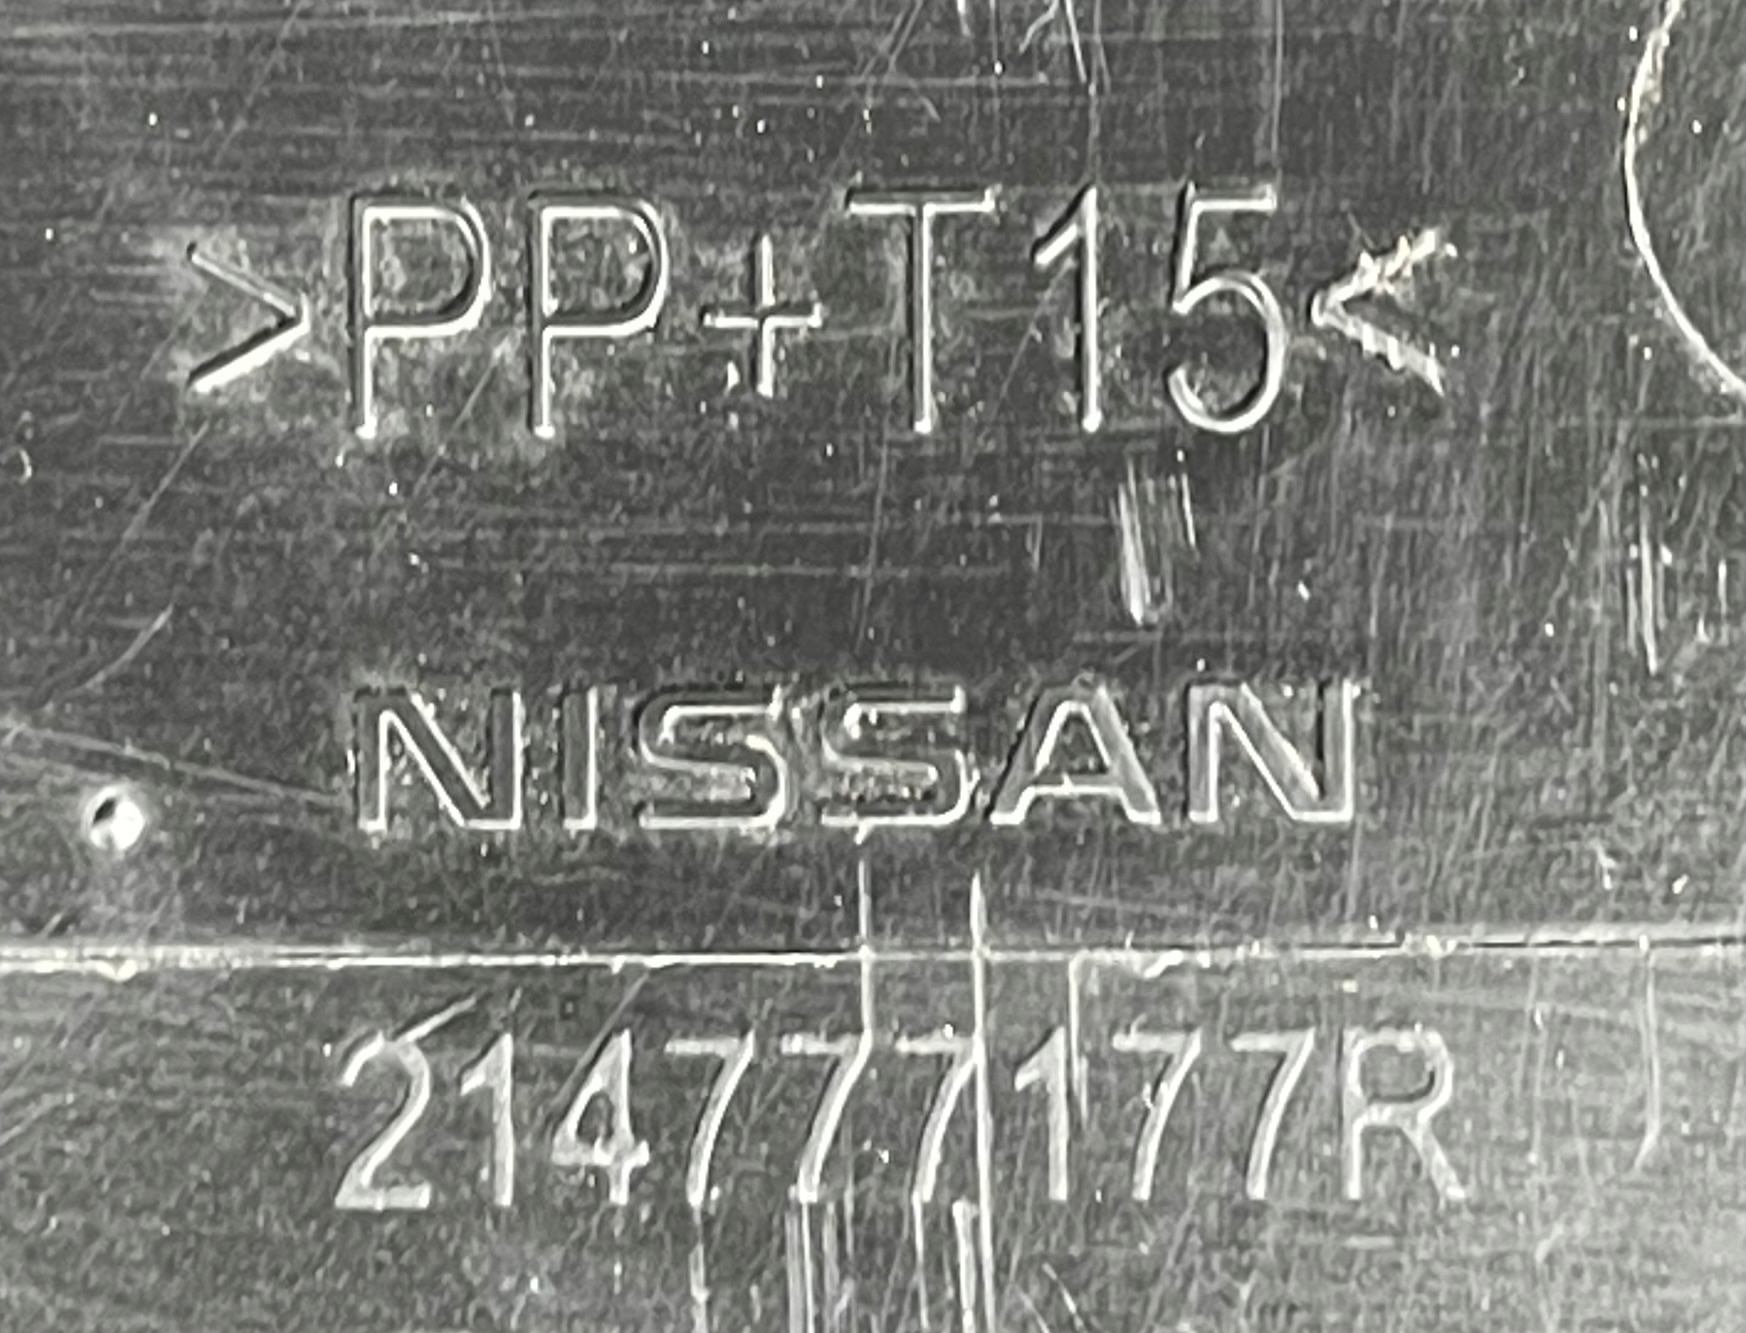 >PP+T15<
NISSAN
214777177R